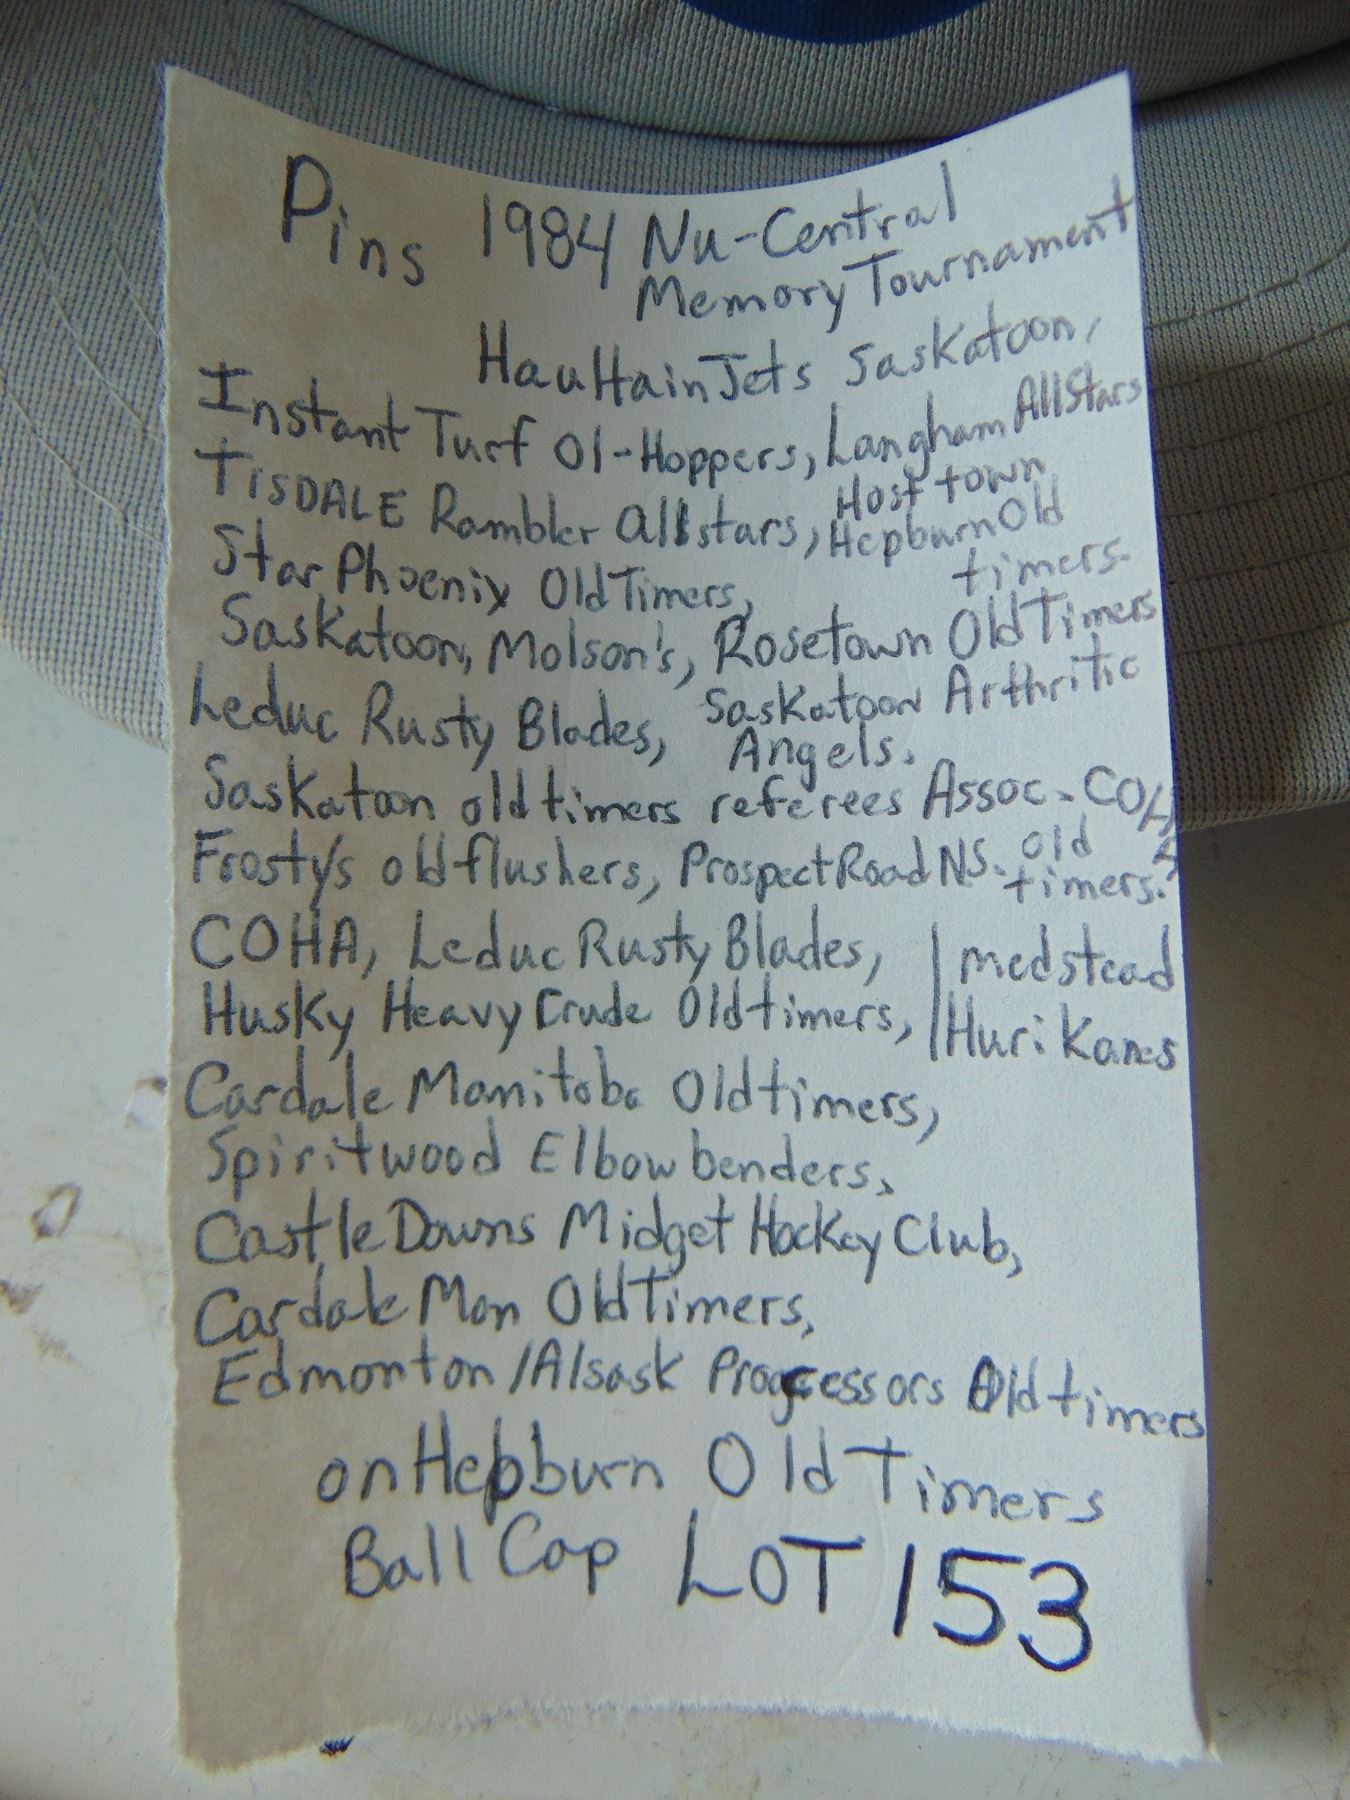 Pins 1984 Nu-Central
Memory Tournament
Haultain Jets Saskatoon,
Instant Turf Ol-Hoppers, Langham AllStars
TISDALE Rambler allstars, Host town
Hepburn Old
timers.
Star Phoenix OldTimers,
Saskatoon, Molson's, Rosetown OldTimers
Leduc Rusty Blades, Saskatoon Arthritic
Angels.
Saskatoon oldtimers referees Assoc. COHA
Frosty's oldflushers, Prospect Road NS. old
timers.
COHA, Leduc Rusty Blades,
medstead
Husky Heavy Crude Oldtimers,
Hurikanes
Cardale Manitoba Oldtimers,
Spiritwood Elbow benders,
Castle Downs Midget Hockey Club,
Cardale Man OldTimers,
Edmonton/Alsask Progressors Oldtimers
on Hepburn Old Timers
Ball Cap LOT 153